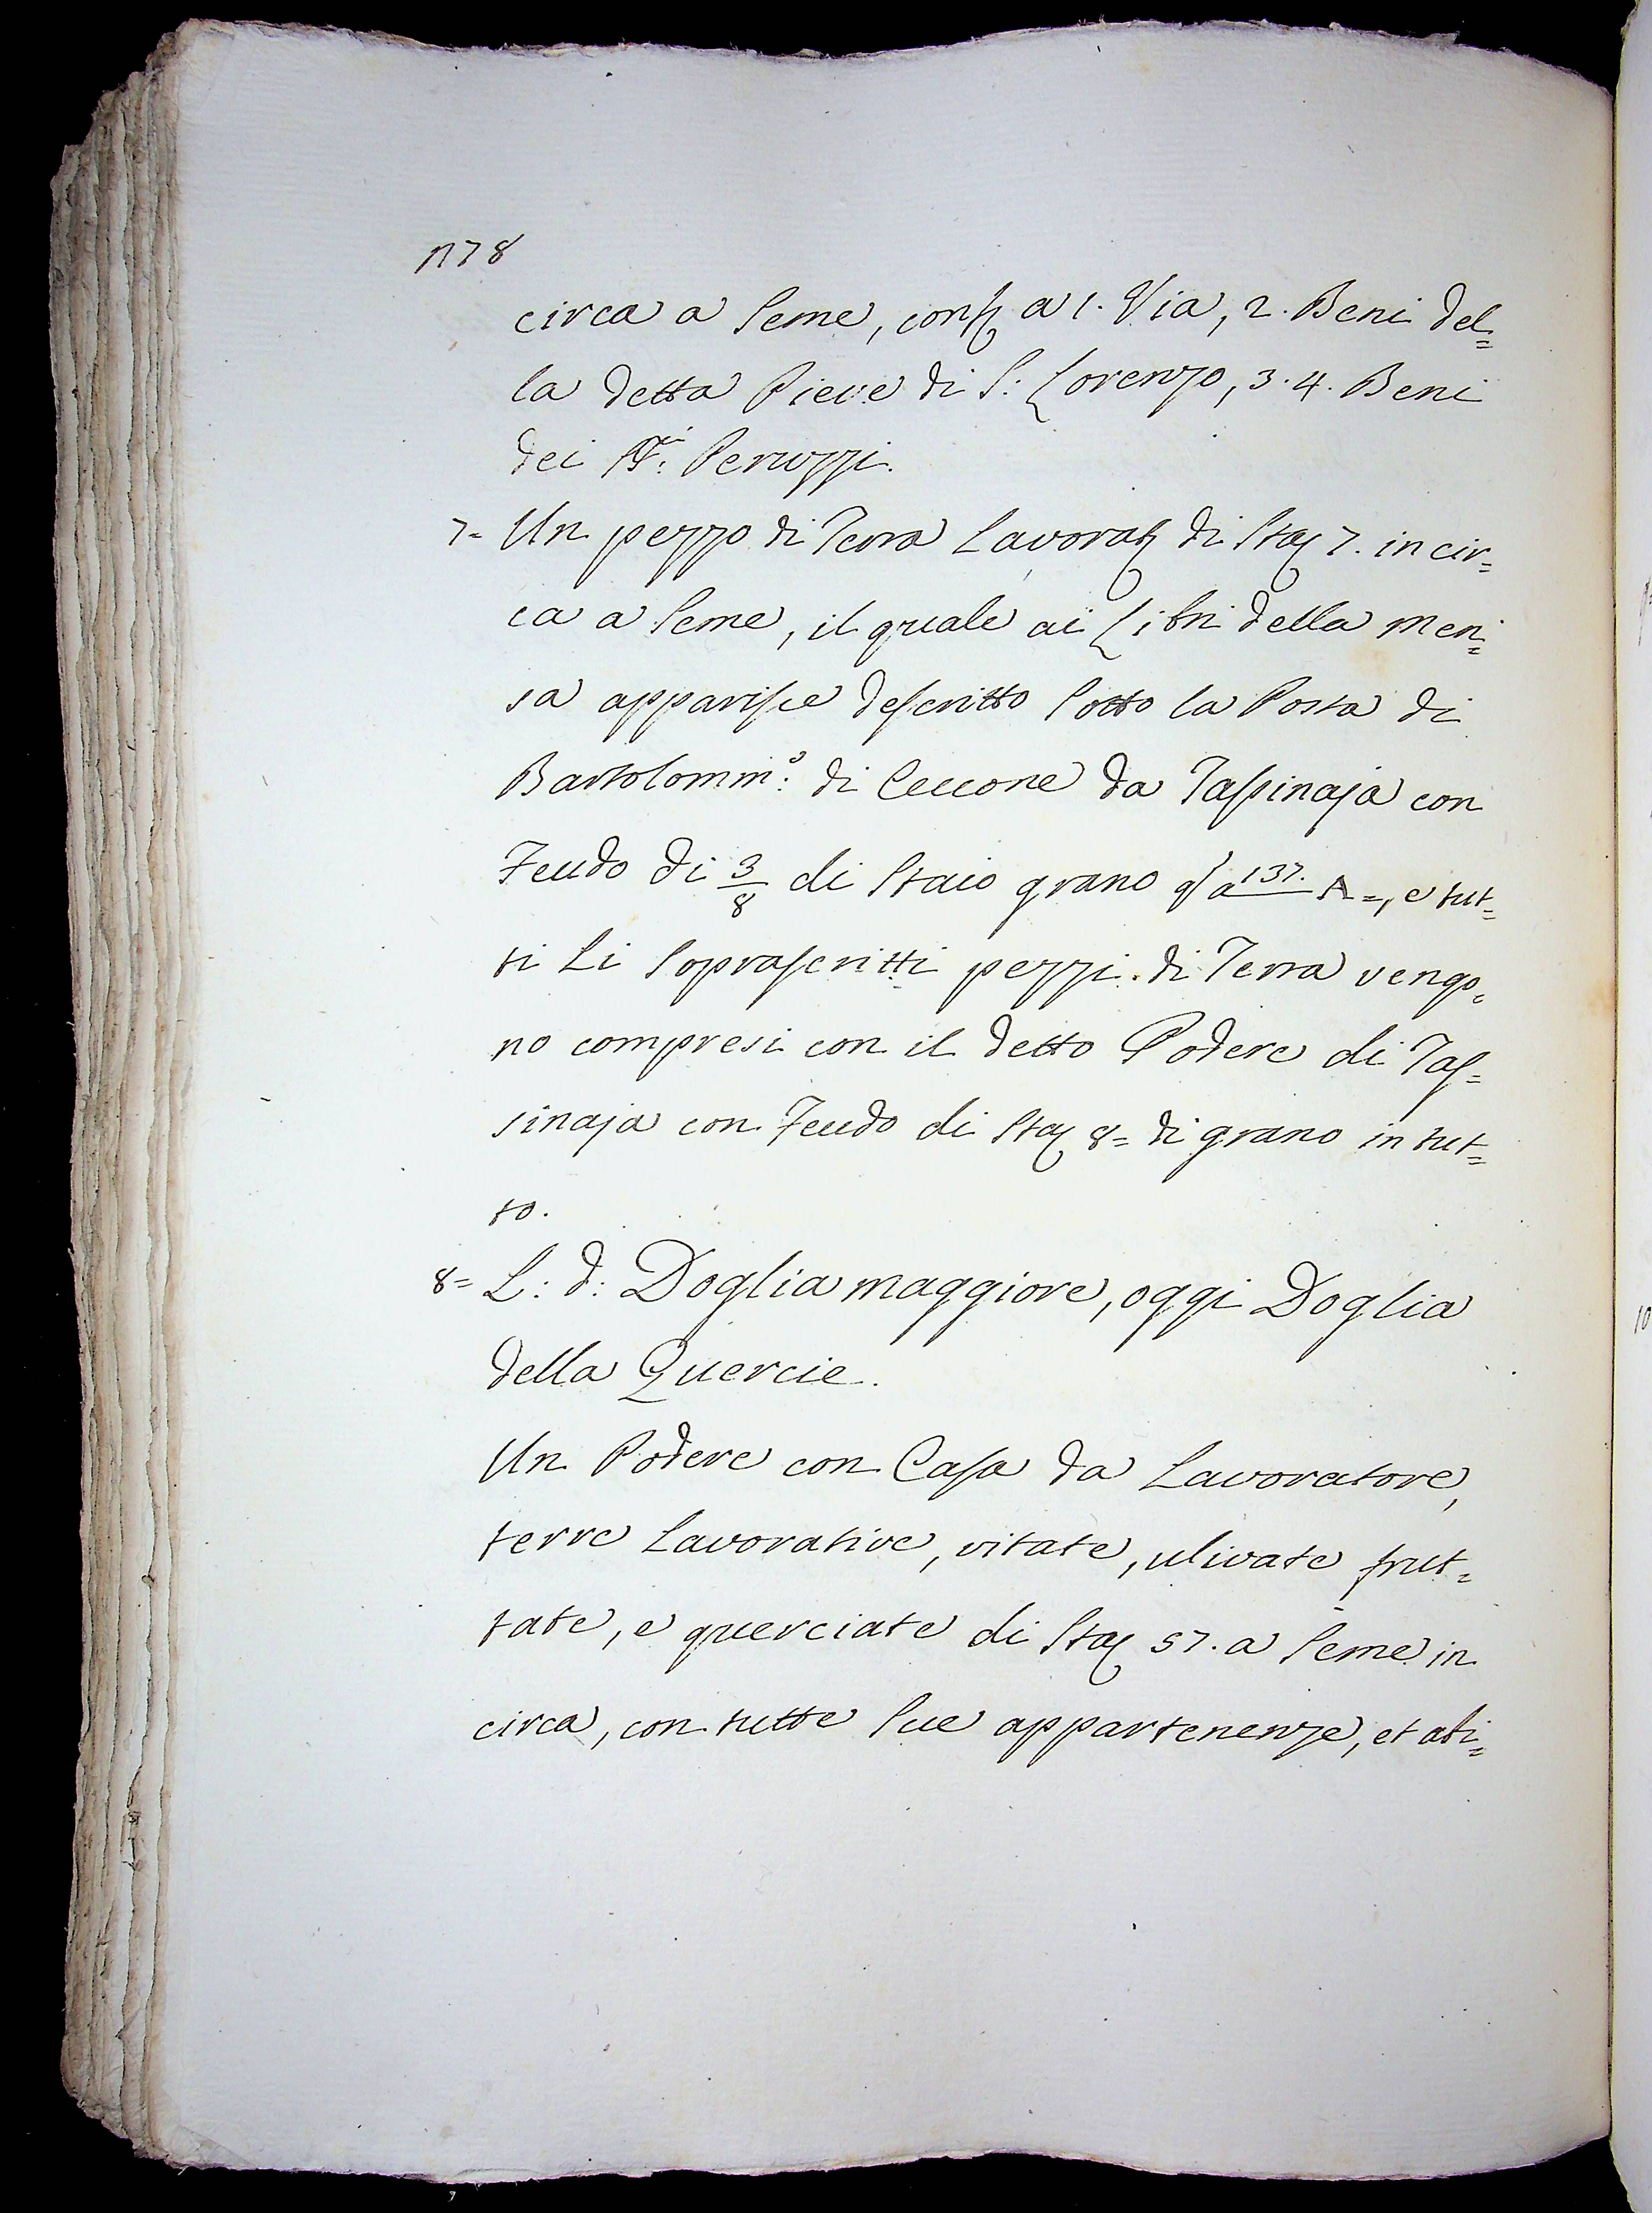 1178
circa a Seme, conf. a 1. Via, 2. Beni del=
la detta Pieve di S: Lorenzo, 3. 4. Beni
dei SS.ri Peruzzi.
7= Un pezzo di Terra Lavorat. di Sta. 7. in cir=
ca a Seme, il quale ai Libri della Men=
sa apparisce descritto Sotto la Posta di
Bartolomm.o: di Ceccone da Tassinaja con
Feudo di 3/8 di Staio grano 137. A=, e tut=
ti Li Soprascritti pezzi di Terra vengo=
no compresi con il detto Podere di Tas=
sinaja con Feudo di Sta. 8= di grano in tut=
to.
8= L: d: Doglia maggiore, oggi Doglia
della Quercie.
Un Podere con Casa da Lavoratore,
terre Lavorative, vitate, ulivate frut=
tate, e querciate di Sta. 57. a Seme in
circa, con tutte Sue appartenenze, et abi=
10